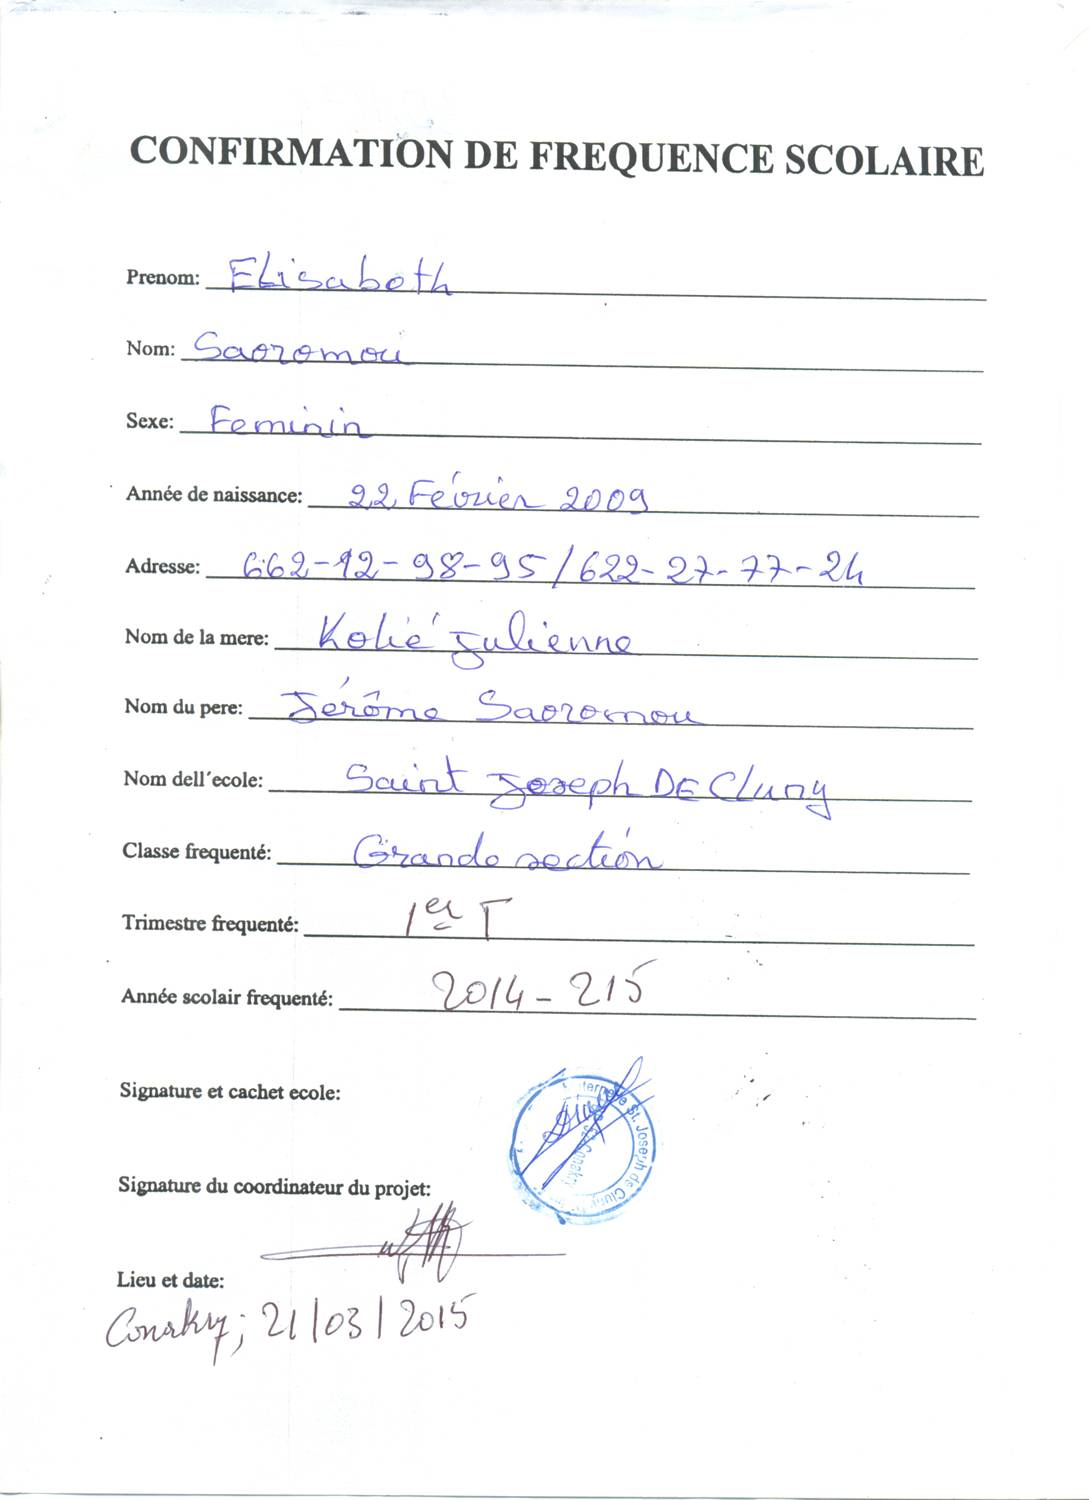 CONFIRMATION DE FREQUENCE SCOLAIRE
Prenom: Elisabeth
Nom: Saoromou
Sexe: Feminin
Année de naissance: 22 Février 2009
Adresse: 662-12-98-95/622-27-77-24
Nom de la mere: Kolié Julienne
Nom du pere: Jérôme Saoromou
Nom dell'ecole: Saint Joseph DE Cluny
Classe frequenté: Grande section
Trimestre frequenté: 1er T
Année scolair frequenté: 2014-215
Signature et cachet ecole:
St. Joseph de Cluny
Conakry
Signature du coordinateur du projet:
Lieu et date:
Conakry; 21/03/2015